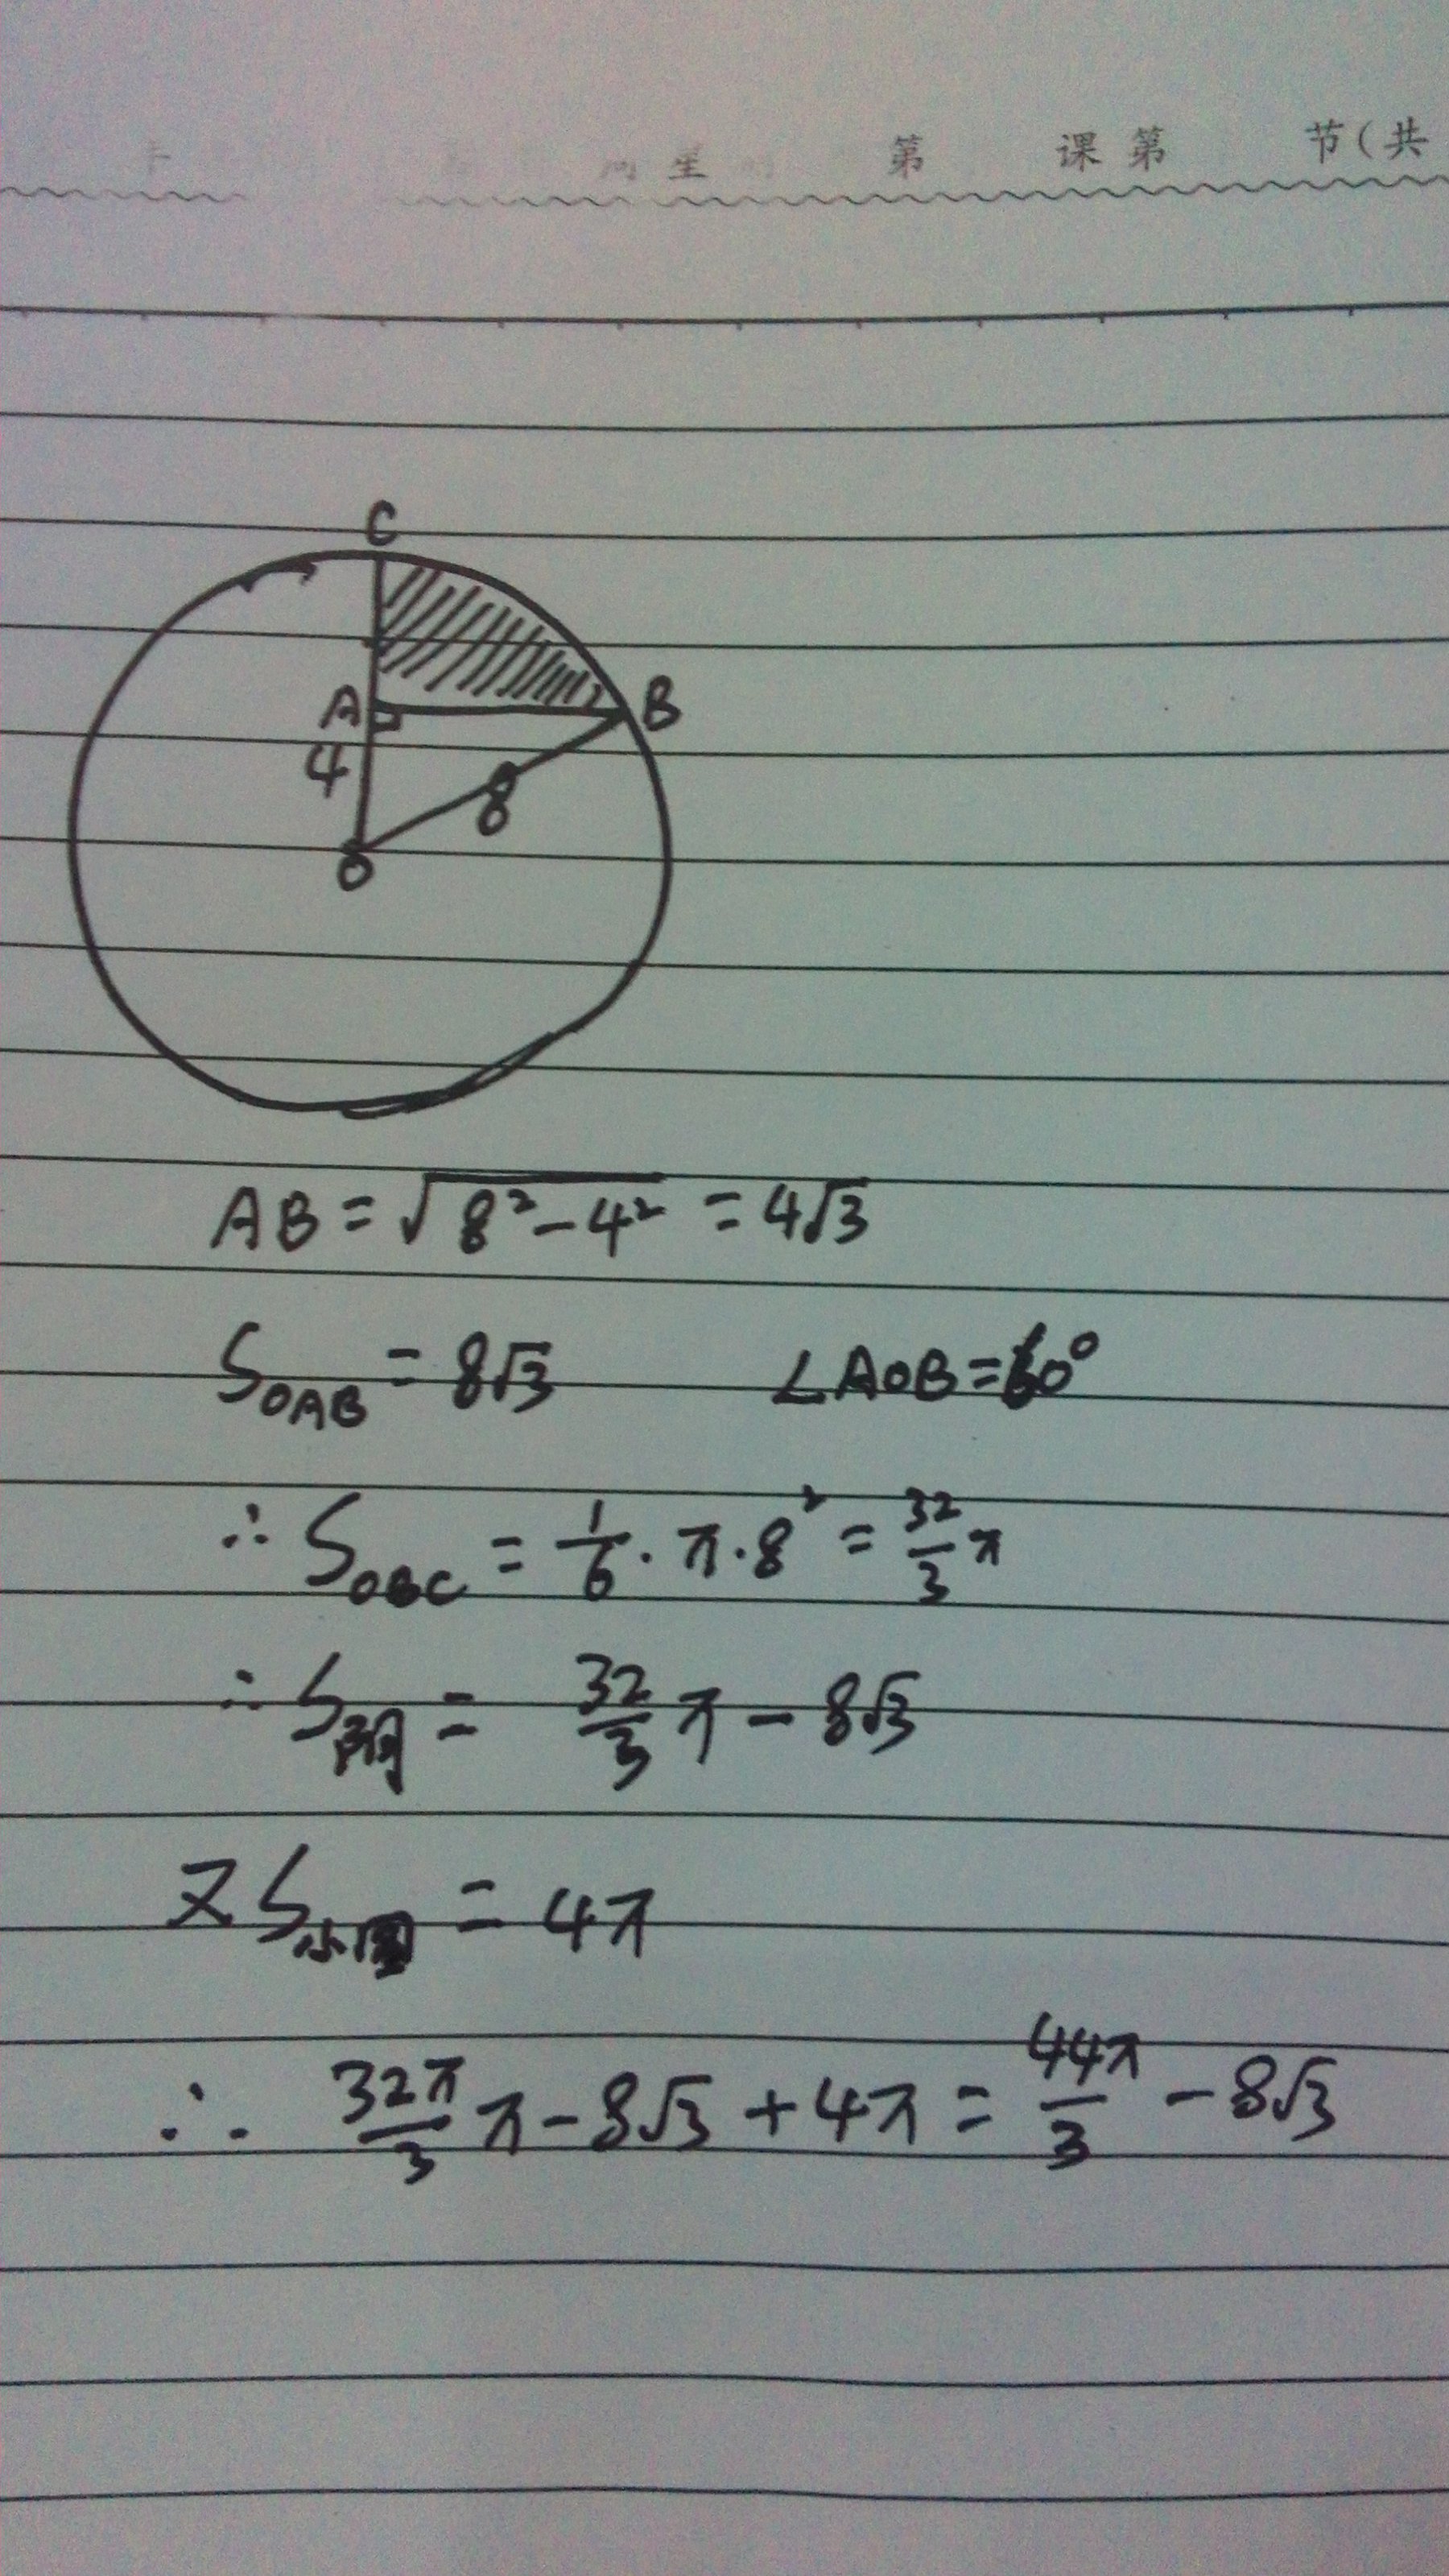 第 课 第 节(共
C
A
B
4
8
O
AB = √(8² - 4²) = 4√3
S_OAB = 8√3 ∠AOB = 60°
∴ S_OBC = 1/6 · π · 8² = 32/3 π
∴ S_阴 = 32/3 π - 8√3
又 S_小圆 = 4π
∴ 32π/3 π - 8√3 + 4π = 44π/3 - 8√3